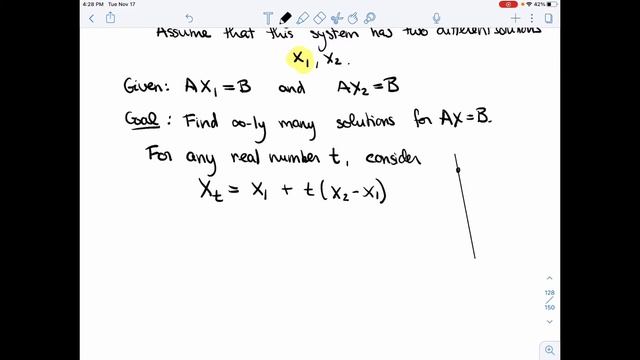 4:28 PM Tue Nov 17
42%
Assume that this system has two different solutions
X₁, X₂.
Given: AX₁ = B and AX₂ = B
Goal: Find ∞-ly many solutions for AX = B.
For any real number t, consider
X_t = X₁ + t(X₂ - X₁)
128
150